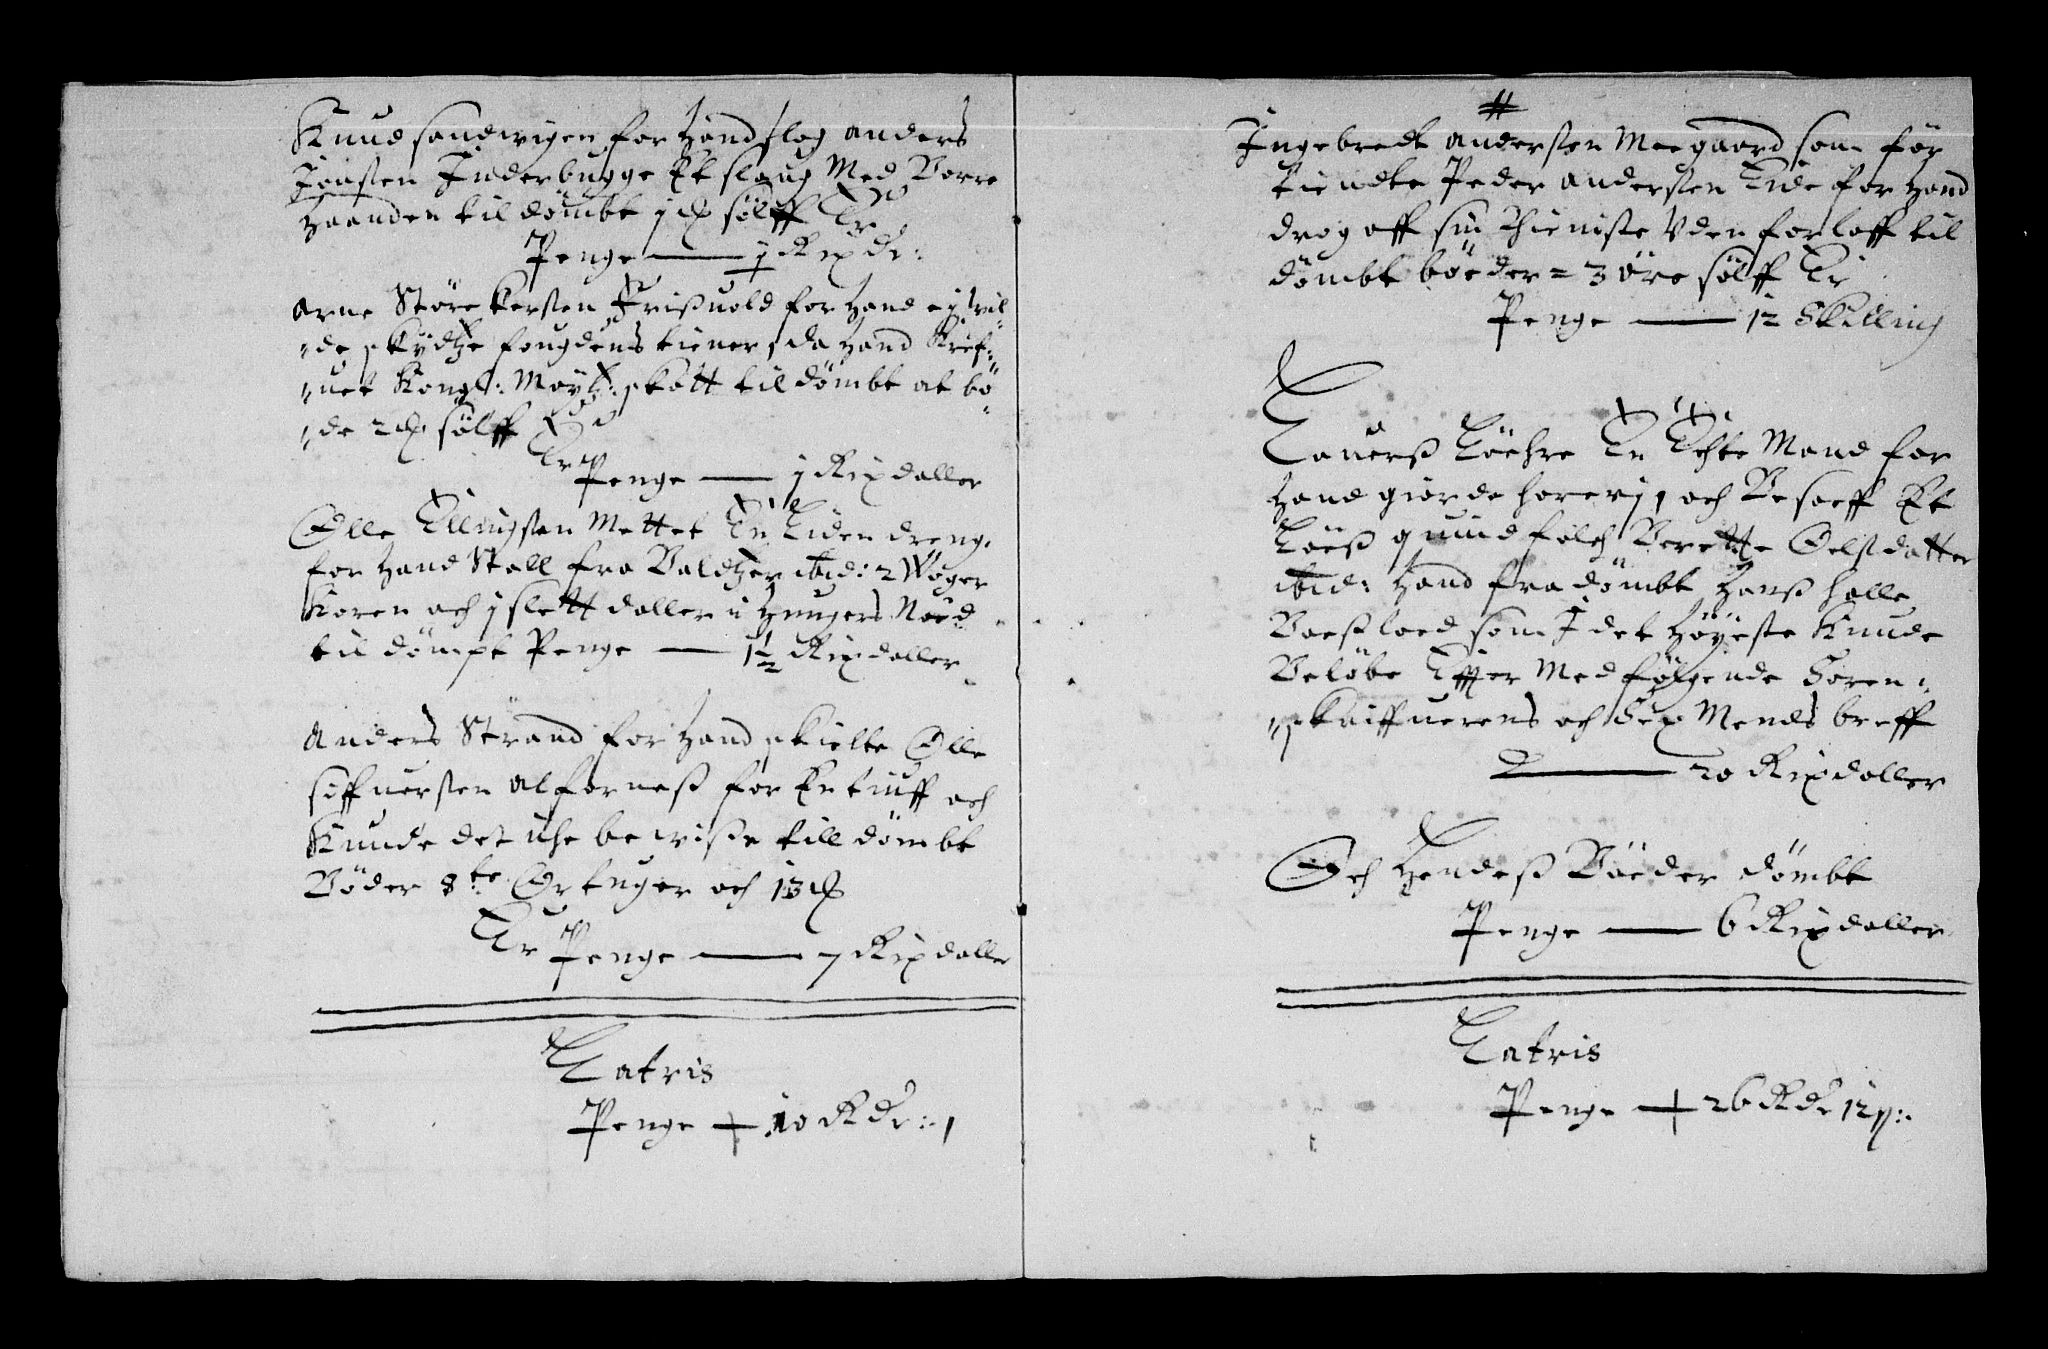 Knud sandvigen for hand slog anders
Jonsen Inderbugge Et slaug Med Borre
haanden til dömbt 1 sölff Er
Penge — 1 Rixdr:
Arne Störckersen Frisuold for hand ej vil
de skydtze fougdens tiener, da hand Kref
uet Kongl: Maytz: skatt til dömbt at bö
de 2 sölff
Er Penge — 1 Rixdaller
Olle Ellingsen Mettet En Liden dreng
for hand Stall fra Baldtzer ibid: 2 Woger
Koren och 1 slett daller i hungers Nöed
til dömpt Penge — 1½ Rixdaller
Anders Strand for hand skielte Olle
siffuersen alforness for En tiuff och
Kunde det iche bewisse till dömbt
Böder 8te Örtuger och 13
Er Penge — 7 Rixdaller
Latris
Penge — 10 Rdr:
Ingebredt andersen Meegaard som för
tiendte Peder andersen Eide for hand
drog aff sin thieniste Uden forloff til
dömbt böeder = 3 öre sölff Er
Penge — 12 Skilling
Lauerss Löchre En Echte Mand for
hand giorde horerij, och Besoeff Et
Löess quindfolch Berette Oelsdatter
ibid: hand fra dömbt hans halle
Boesslaed som I det höyeste Kunde
Belöbe Effter Medfölgende Soren
skriffuerens och Sex Mends breff
— 20 Rixdaller
Och hendess Böeder dömbt
Penge — 6 Rixdaller
Latris
Penge — 26 Rdr 12 s: